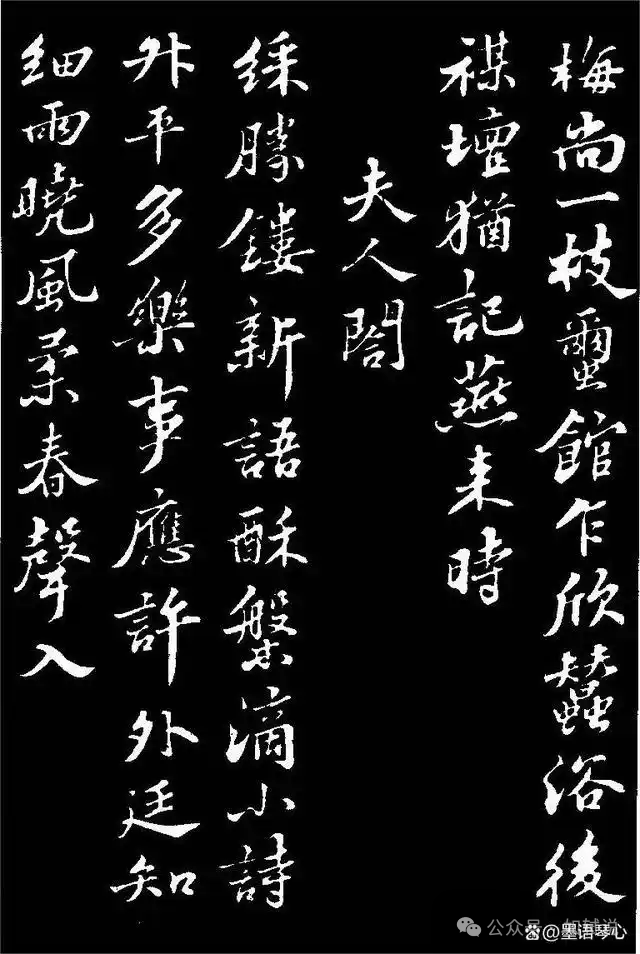 梅尚一枝蠒館乍欣蠶浴後
禖壇猶記燕来時
夫人閤
綵勝鏤新語酥槃滴小詩
升平多樂事應許外廷知
細雨曉風柔春聲入
公众号
@墨语琴心